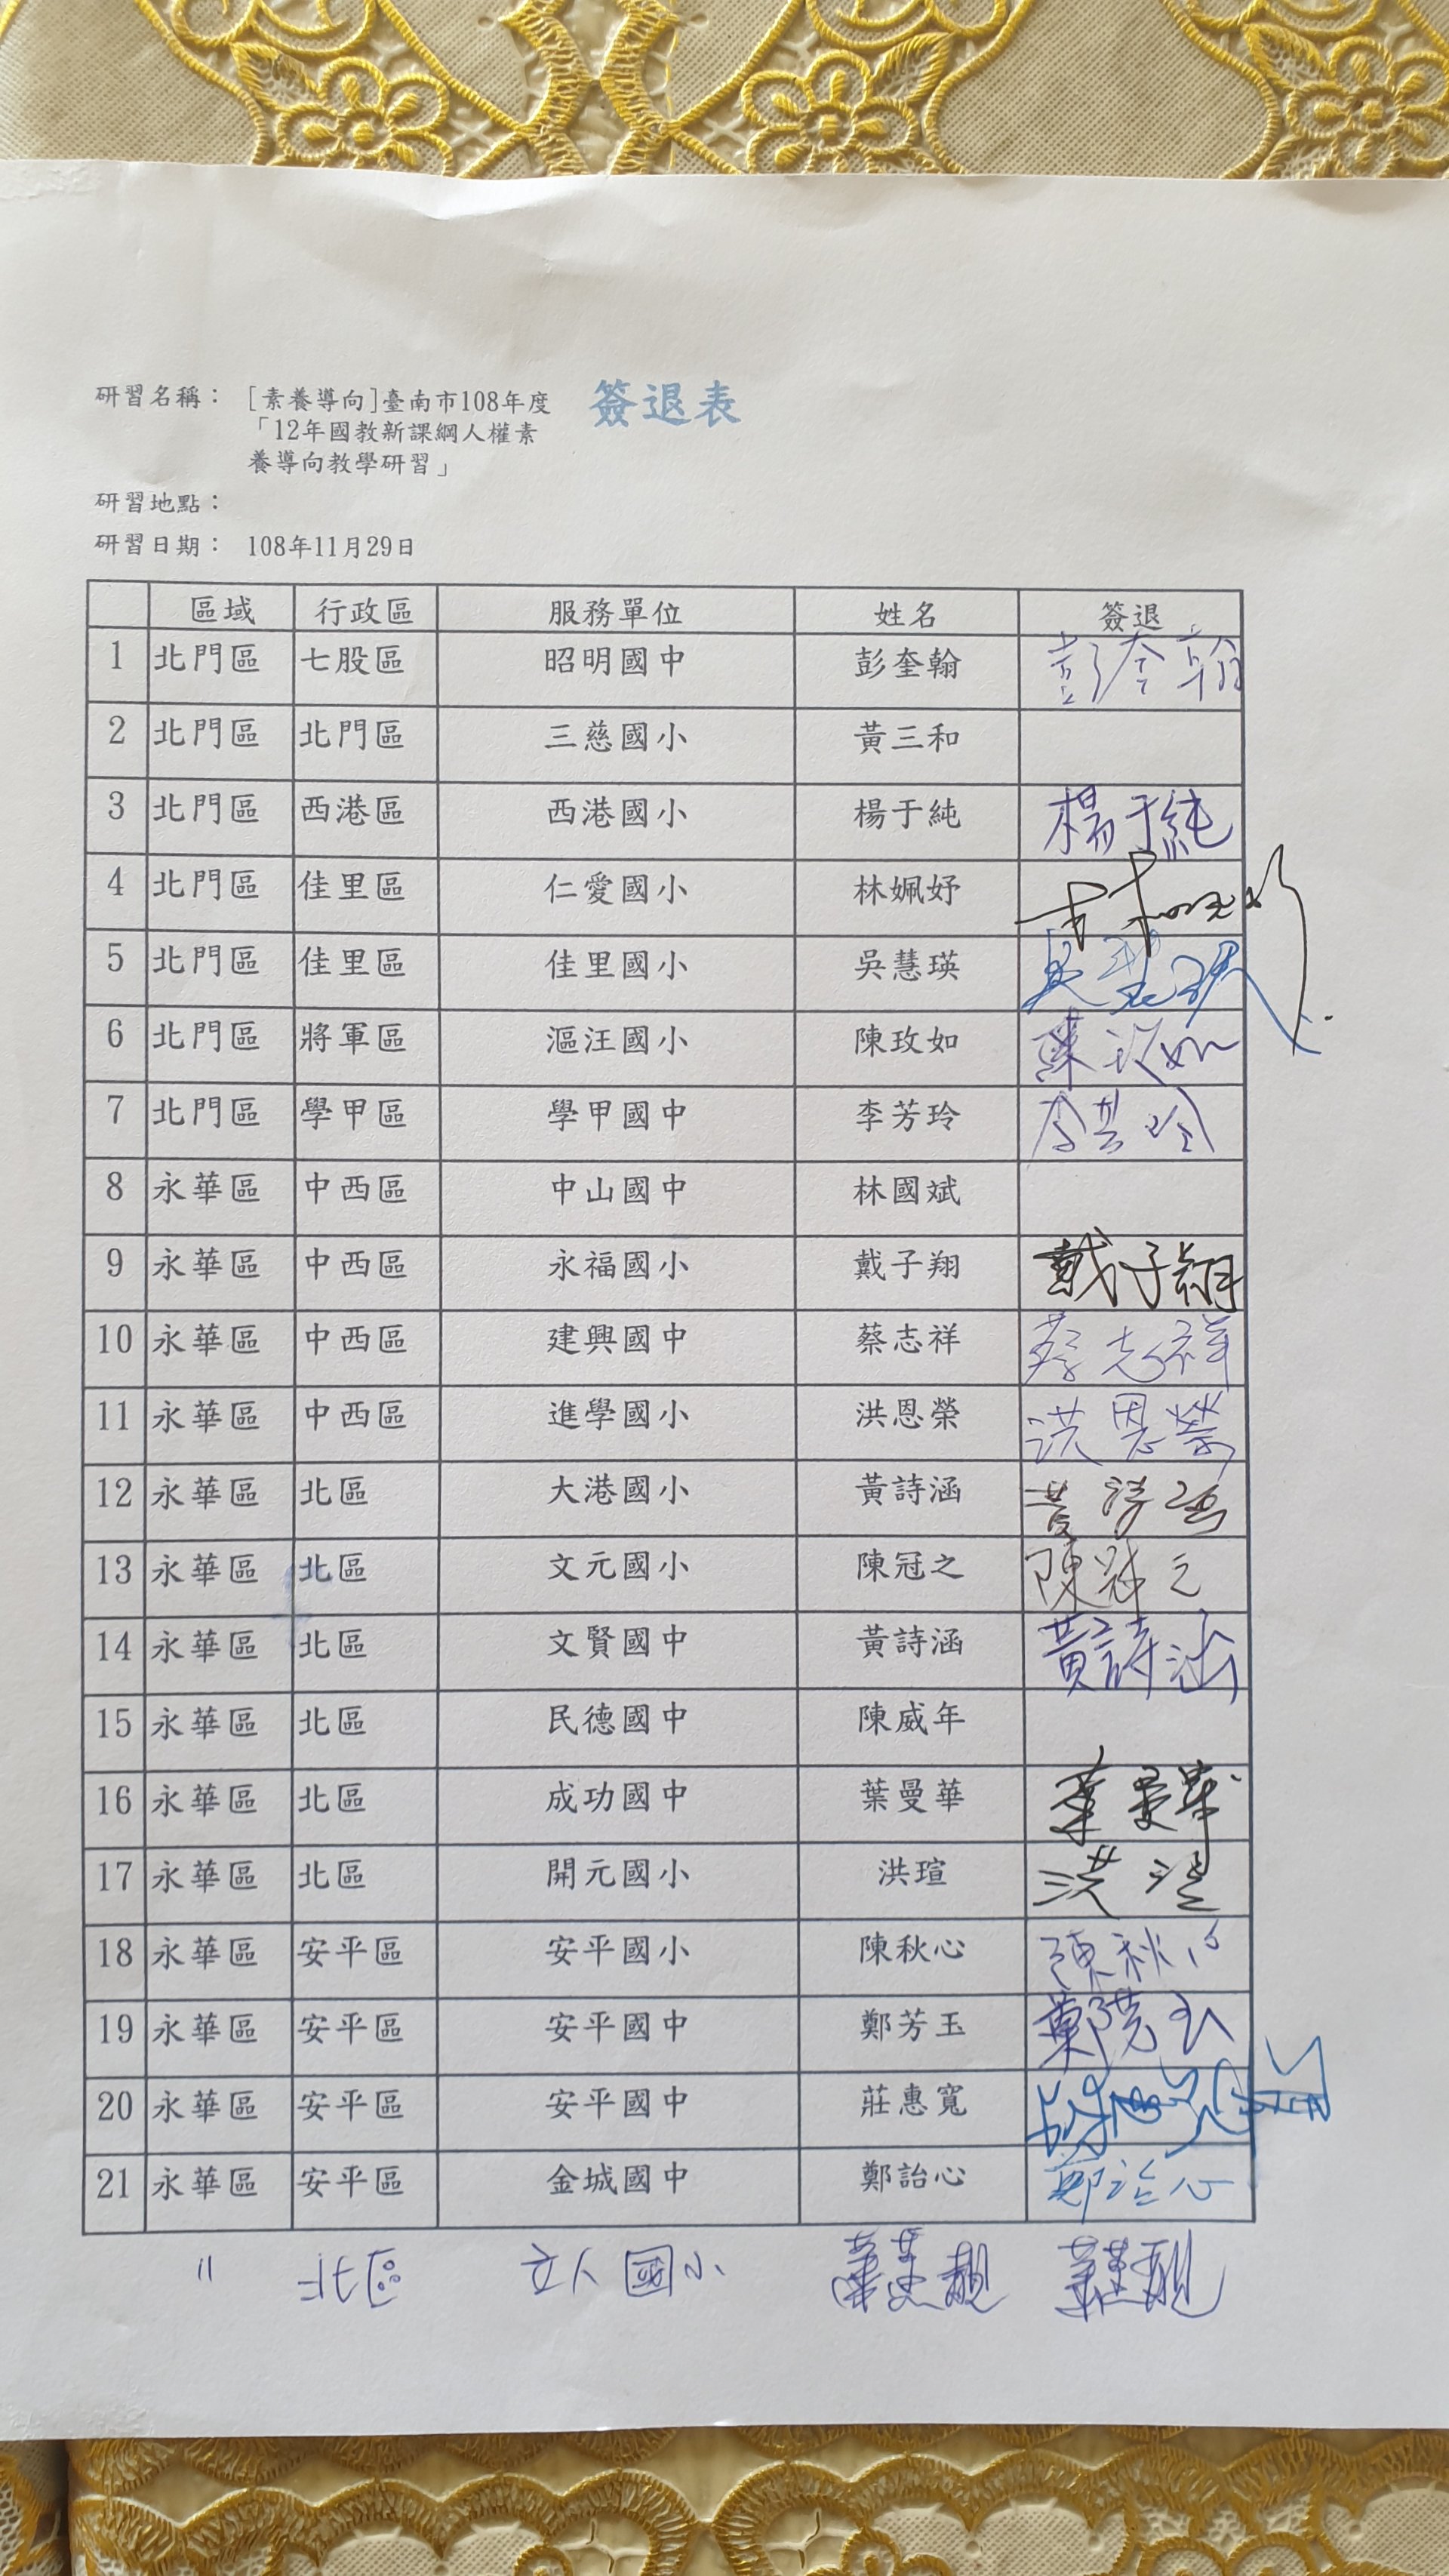 研習名稱： [素養導向]臺南市108年度 簽退表
「12年國教新課綱人權素
養導向教學研習」
研習地點：
研習日期： 108年11月29日
區域 行政區 服務單位 姓名 簽退
1 北門區 七股區 昭明國中 彭奎翰 彭奎翰
2 北門區 北門區 三慈國小 黃三和
3 北門區 西港區 西港國小 楊于純 楊于純
4 北門區 佳里區 仁愛國小 林姵妤
5 北門區 佳里區 佳里國小 吳慧瑛 吳慧瑛
6 北門區 將軍區 漚汪國小 陳玫如 陳玫如
7 北門區 學甲區 學甲國中 李芳玲 李芳玲
8 永華區 中西區 中山國中 林國斌
9 永華區 中西區 永福國小 戴子翔 戴子翔
10 永華區 中西區 建興國中 蔡志祥 蔡志祥
11 永華區 中西區 進學國小 洪恩榮 洪恩榮
12 永華區 北區 大港國小 黃詩涵 黃詩涵
13 永華區 北區 文元國小 陳冠之 陳冠之
14 永華區 北區 文賢國中 黃詩涵 黃詩涵
15 永華區 北區 民德國中 陳威年
16 永華區 北區 成功國中 葉曼華 葉曼華
17 永華區 北區 開元國小 洪瑄 洪瑄
18 永華區 安平區 安平國小 陳秋心 陳秋心
19 永華區 安平區 安平國中 鄭芳玉 鄭芳玉
20 永華區 安平區 安平國中 莊惠寬
21 永華區 安平區 金城國中 鄭詒心 鄭詒心
〃 北區 立人國小